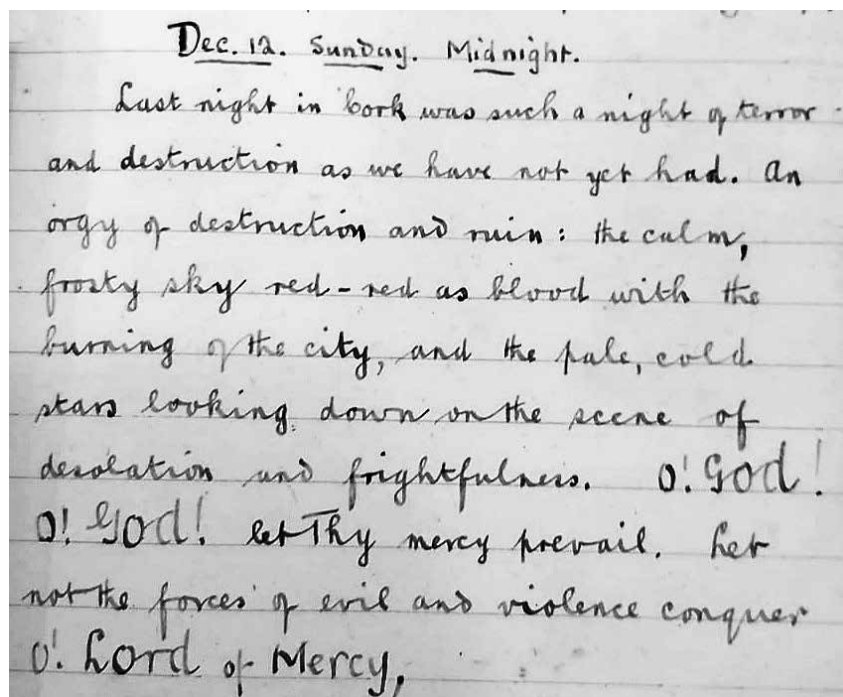 Dec. 12. Sunday. Midnight.
Last night in Cork was such a night of terror
and destruction as we have not yet had. An
orgy of destruction and ruin: the calm,
frosty sky red - red as blood with the
burning of the city, and the pale, cold
stars looking down on the scene of
desolation and frightfulness. O! God!
O! God! let Thy mercy prevail. Let
not the forces of evil and violence conquer
O! Lord of Mercy,